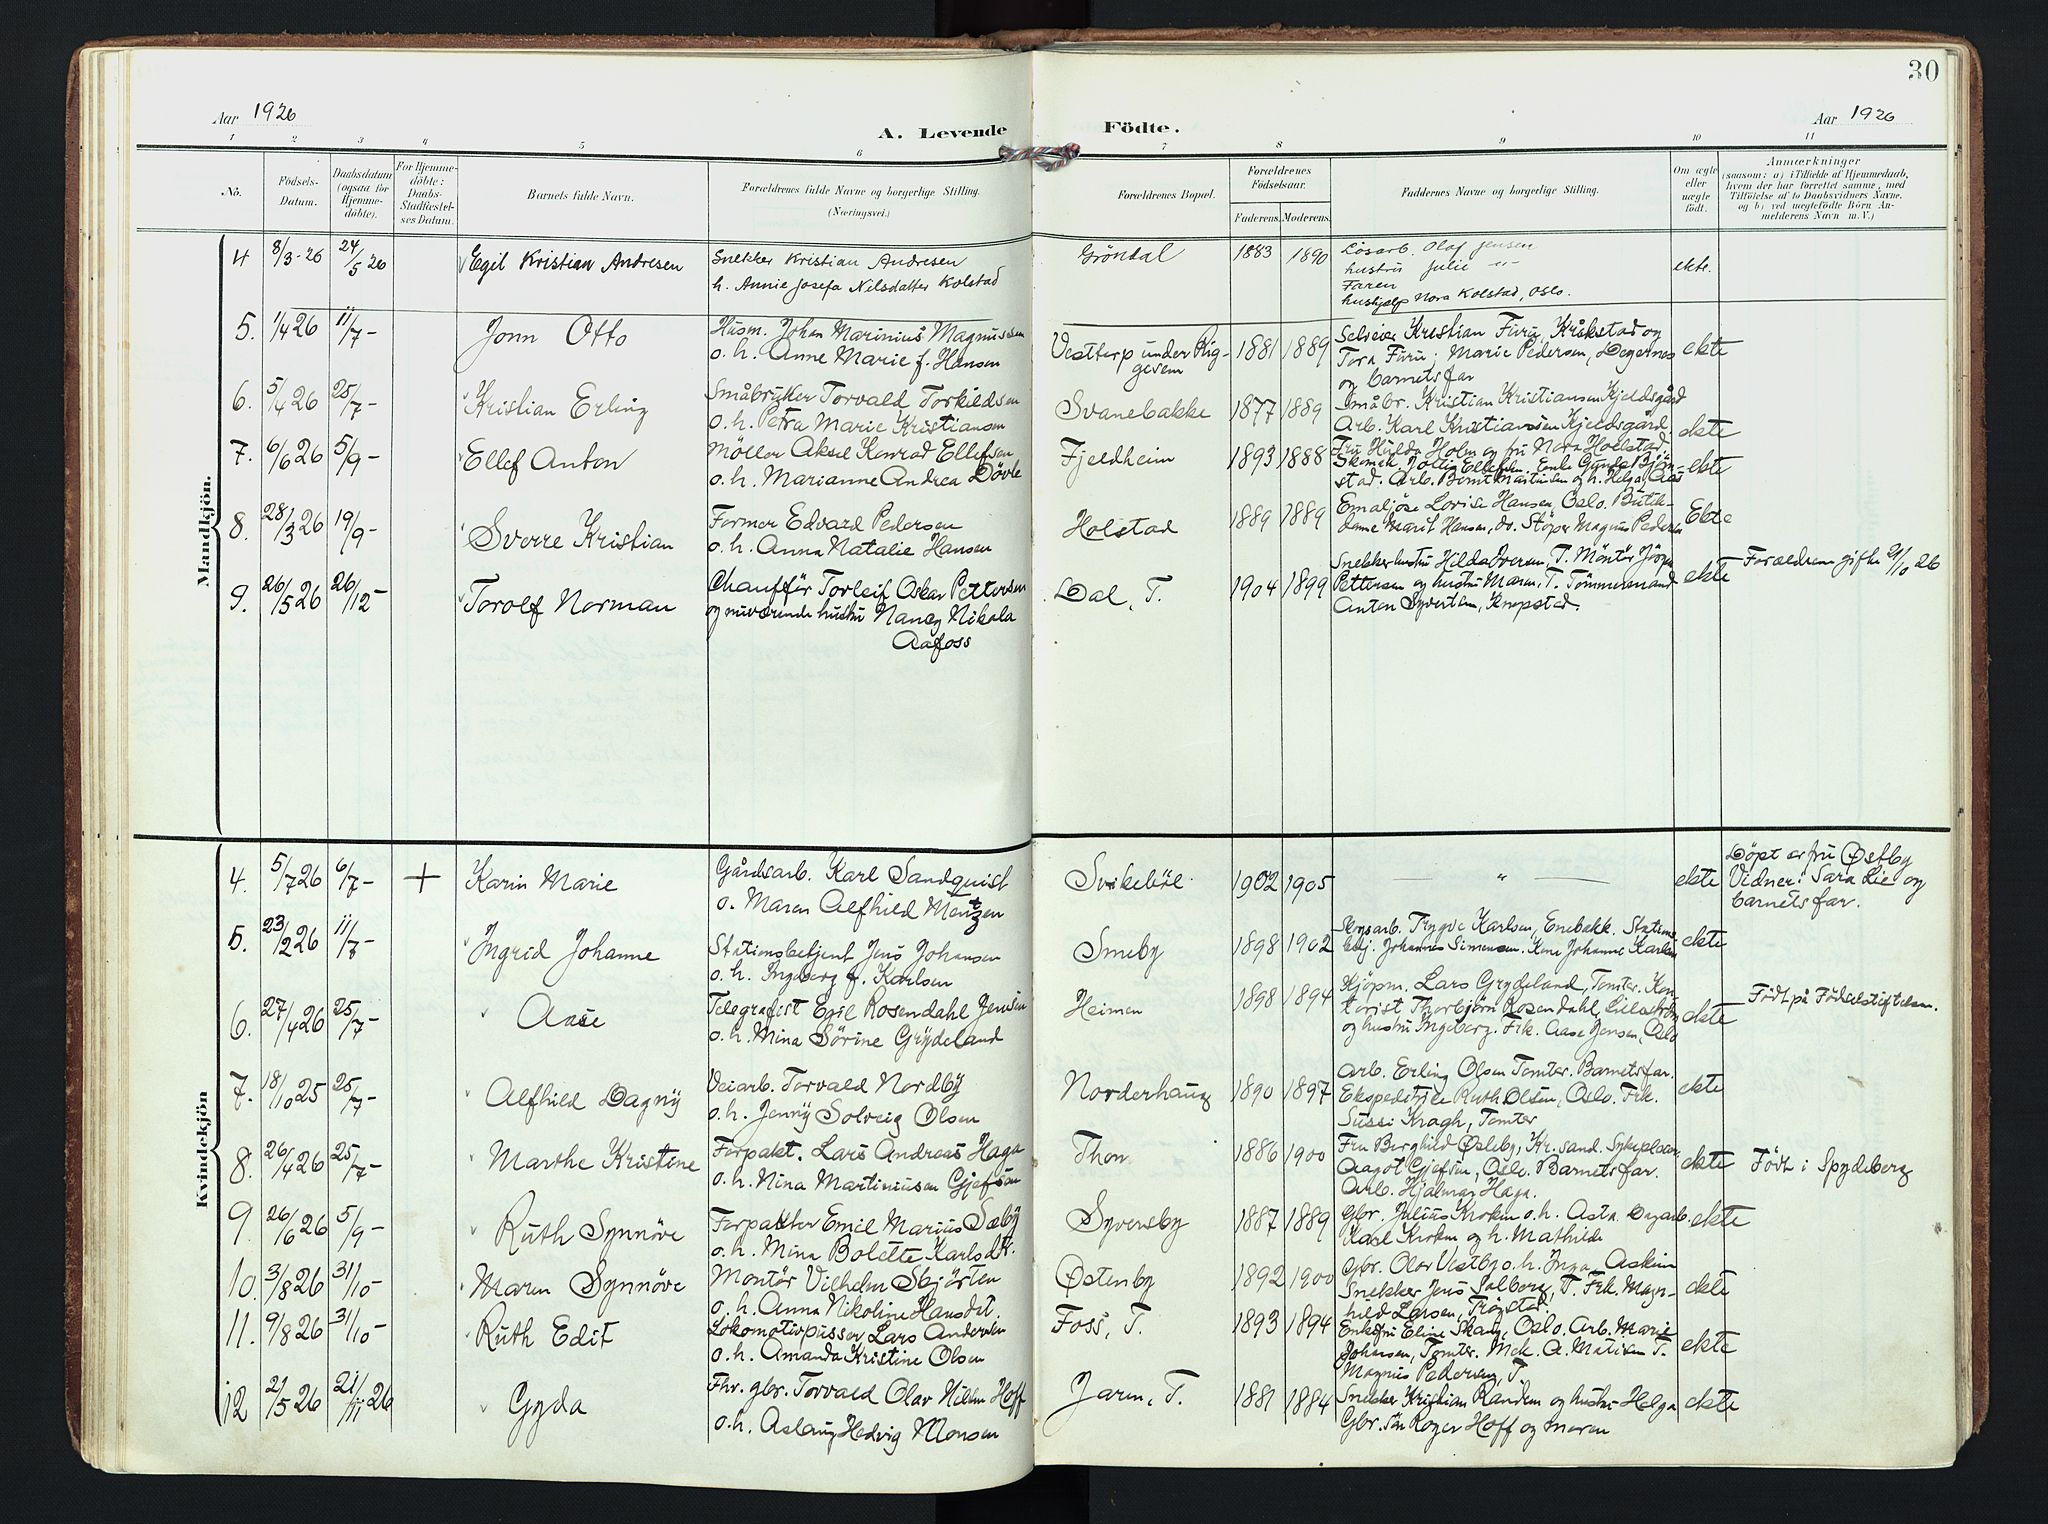 30
Aar 1926
A. Levende
Födte.
Aar 1926
1 2 3 4 5 6 7 8 9 10 11
No.
Födsels-
Datum.
Daabsdatum
(ogsaa for
Hjemme-
döbte).
For Hjemme-
döbte:
Daabs-
Stadfæstel-
ses Datum.
Barnets fulde Navn.
Forældrenes fulde Navne og borgerlige Stilling.
(Næringsvei.)
Forældrenes Bopæl.
Forældrenes
Födselsaar.
Faderens.
Moderens.
Faddernes Navne og borgerlige Stilling.
Om ægte
eller
uægte
födt.
Anmærkninger
(saasom: a) i Tilfælde af Hjemmedaab,
hvem der har forrettet samme, med
Tilföielse af to Daabsvidners Navne,
og b) ved uægtefödte Börn An-
melderens Navn m. V.)
Mandkjön.
4 8/3-26 24/5 26 Egil Kristian Andresen
Snekker Kristian Andresen
h. Annie Josefa Nilsdatter Kolstad
Gröndal 1883 1890
Lösarb. Olaf Jensen
hustru Julie -"-
Faren
hushjælp Nora Kolstad, Oslo.
ekte.
5. 1/4 26 11/7- Jonn Otto
Husm. Johan Marinius Magnussen
o. h. Anne Marie f. Hansen
Vestterp under Rig-
gesem
1881 1889
Selveier Kristian Furu, Kråkstad og
Tora Furu; Marie Pedersen, Degernes
og barnets far
ekte
6. 5/4 26 25/7- Kristian Erling
Småbruker Torvald Torkildsen
o. h. Petra Marie Kristiansen
Svanebakke 1877 1889
Småbr. Kristian Kristiansen Kjeldsgård
Arb. Karl Kristiansen Kjeldsgård.
Fru Hilda Holm og fru Nora Holstad
ekte
7. 6/6 26 5/9- Ellef Anton
Möller Aksel Konrad Ellefsen
o. h. Marianne Andrea Dövle
Fjeldheim 1893 1888
stad. Arb. Bernt Martinsen og h. Helga, Aas
ekte
8. 28/3 26 19/9- Sverre Kristian
Former Edvard Pedersen
o. h. Anna Natalie Hansen
Holstad 1889 1889
Emaljöse Lovise Hansen, Oslo. Butik-
dame Marit Hansen, do. Stöper Magnus Pedersen
Ekte
9. 26/5 26 26/12- Torolf Norman
Chaufför Torleif Oskar Pettersen
og nuværende hustru Nancy Nikola
Aafoss
Dal, T. 1904 1899
Snekkerhustru Hilda Iversen, T. Möntör Jörgen
Pettersen og hustru Maren, T. Tömmermand
Anton Syvertsen, Knapstad.
ekte
Forældrene gifte 9/10 26
Kvindekjön
4. 5/7 26 6/7- + Karin Marie
Gårdsarb. Karl Sandquist
o. Maren Alfhild Mentzen
Svikeböl 1902 1905
— " —
ekte
Döpt av fru Østby
Vidner: Sara Lie og
barnets far.
5. 23/2 26 11/7- Ingrid Johanne
Stationsbetjent Jens Johansen
o. h. Ingeborg f. Karlsen
Smeby 1898 1902
Skogsarb. Trygve Karlsen, Enebakk. Stations-
betj. Johannes Simensen. Kone Johanne Karlsen
ekte
6. 27/4 26 25/7- Aase
Telegrafist Egil Rosendahl Jensen
o. h. Mina Sörine Grydeland
Heimen 1898 1894
Kjöpm. Lars Grydeland, Tomter. Kon-
torist Thorbjörn Rosendahl, Lilleström
og hustru Ingeborg. Frk. Aase Jensen, Oslo
ekte
Födt på Födselstiftelsen.
7. 18/10 25 25/7- Alfhild Dagny
Veiarb. Torvald Nordby
o. h. Jenny Solveig Olsen
Norderhaug 1890 1897
Arb. Erling Olsen Tomter. Barnets far.
Ekspeditrice Ruth Olsen, Oslo. Frk.
Sussi Kragh, Tomter
ekte
8. 26/4 26 25/7- Marthe Kristine
Forpakt. Lars Andreas Haga
o. h. Nina Martinusen Gjefsen
Thon 1886 1900
Fru Berghild Østeby, Kr. sand. Sykepleier
Aagot Gjefsen, Oslo. Barnets far.
Arb. Hjalmar Haga.
ekte
Födt i Spydeberg
9. 26/6 26 5/9- Ruth Synnöve
Forpakter Emil Marius Sæby
o. h. Mina Bolette Karlsdt.
Syversby 1887 1889
Gbr. Julius Kroken o. h. Asta. Dagarb.
Karl Kroken og h. Mathilde
ekte
10. 3/8 26 31/10- Maren Synnöve
Montör Vilhelm Skjörten
o. h. Anna Nikoline Hansdt.
Østenby 1892 1900
Gbr. Olav Vestby o. h. Inga, Askim
Snekker Jens Solberg, T. Frk. Magn-
hild Larsen, Trögstad.
ekte
11. 9/8 26 31/10- Ruth Edit
Lokomotivpusser Lars Andersen
o. h. Amanda Kristine Olsen
Foss, T. 1893 1894
Enkefru Eline Skaug, Oslo. Arb. Marie
Johansen, Tomter. Mek. A. Matisen T.
Magnus Pedersen, T.
ekte
12 2/5 26 21/11 26 Gyda
Fhr. gbr. Torvald Olav Hilm Hoff
o. h. Aslaug Hedvig Monsen
Jaren, T. 1881 1884
Snekker Kristian Randem og hustru Helga
Gbr. sön Roger Hoff og moren
ekte